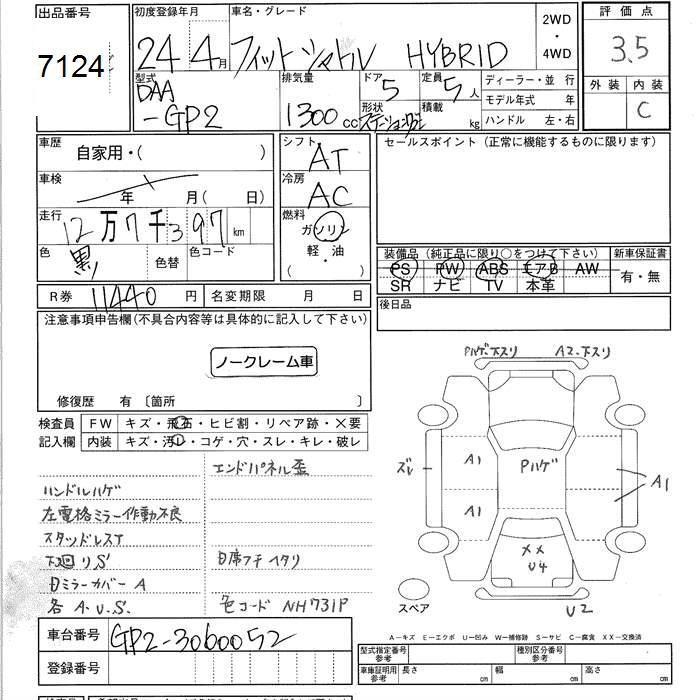 出品番号
7124
初度登録年月
24年 4月
車名・グレード
フィットシャトル HYBRID
2WD
・
4WD
評価点
3.5
外装 内装
C
型式
DAA
-GP2
排気量
1300 cc
ドア 5
形状
定員 5人
積載 kg
ディーラー・並 行
モデル年式 年
ハンドル 左・右
車歴
自家用・( )
車検
年 月(日)
走行
12万7千397km
色 黒 色替 色コード
シフト
AT
冷房
AC
燃料
ガソリン
軽・油
( )
セールスポイント (正常に機能するものに限ります)
装備品 (純正品に限り○をつけて下さい)
PS PW ABS エアB AW
SR ナビ TV 本革
新車保証書
有・無
R券 11440円 名変期限 月 日
後日品
注意事項申告欄(不具合内容等は具体的に記入して下さい)
ノークレーム車
修復歴 有 〔箇所 〕
検査員
記入欄
FW キズ・飛石・ヒビ割・リペア跡・×要
内装 キズ・汚レ・コゲ・穴・スレ・キレ・破レ
エンドパネル歪
ハンドルハゲ
左電格ミラー作動不良
スタッドレスT
下廻リS
右席フチヘタリ
右ミラーカバー A
各 A.U.S.
色コード NH731P
Pハゲ.下スリ A2.下スリ
ズレ
A1
A1
Pハゲ
A1
××
U4
U2
スペア
A-キズ E-エクボ U-凹み W-補修跡 S-サビ C-腐食 XX-交換済
車台番号 GP2-3060052
登録番号
型式指定番号
参考
種別区分番号
参考
車庫証明用
参考
長さ cm 幅 cm 高さ cm